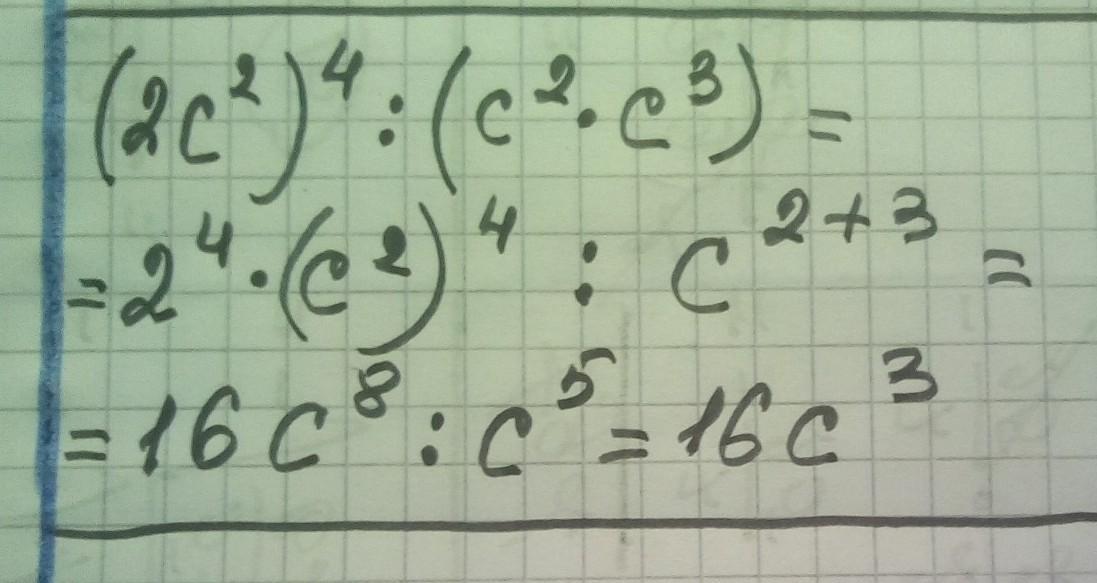 (2c²)⁴ : (c² · c³) =
= 2⁴ · (c²)⁴ : c²⁺³ =
= 16c⁸ : c⁵ = 16c³